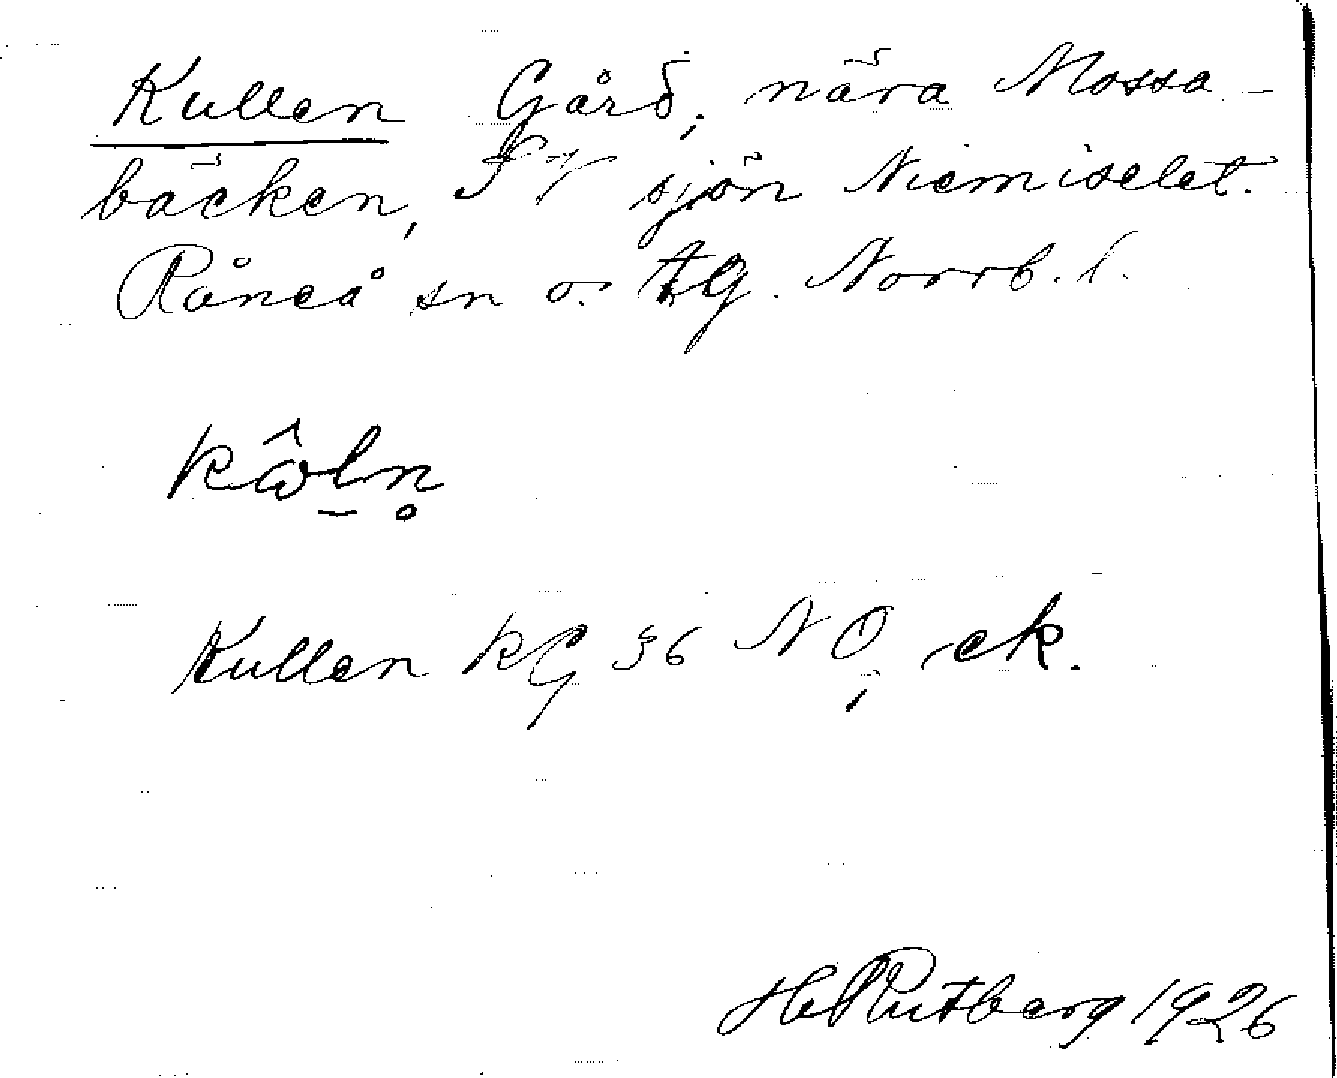 Kullen Gård, nära Mossa-
bäcken, SV sjön Niemiselet.
Råneå sn o. tg. Norrb. l.
kâln̥
Kullen KG 36 NO, ek.
H Rutberg 1926